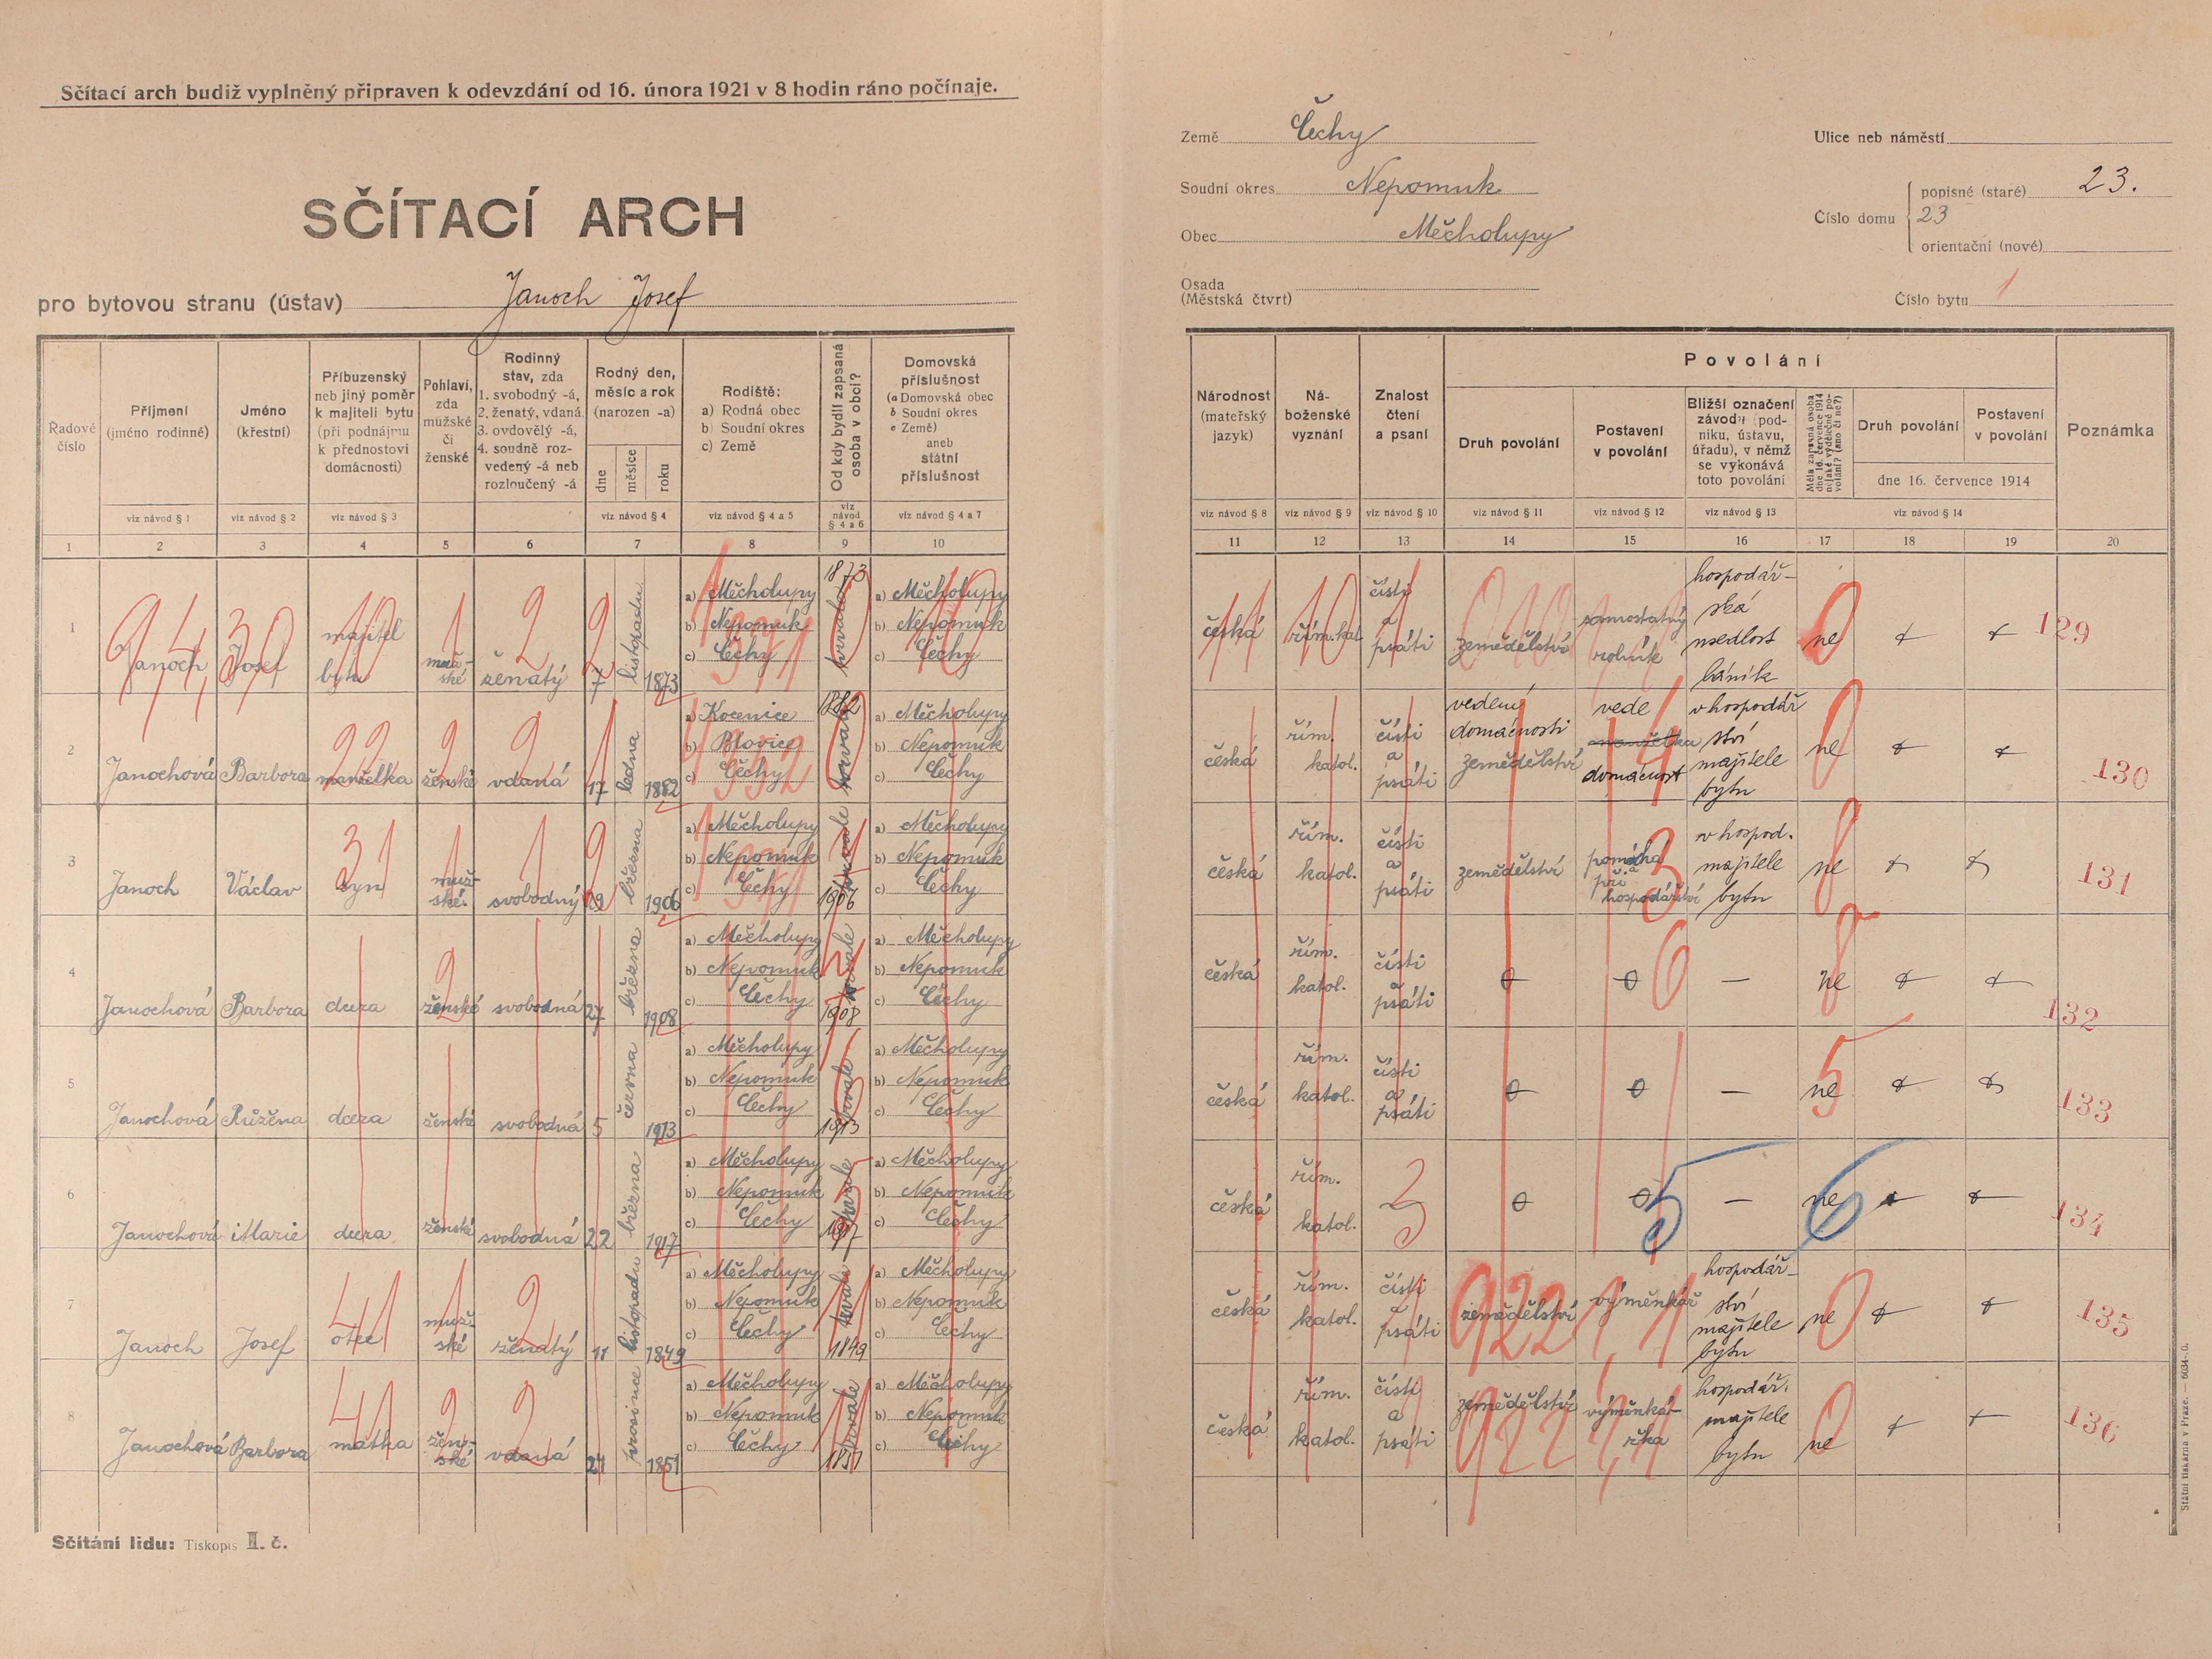 Sčítací arch budiž vyplněný připraven k odevzdání od 16. února 1921 v 8 hodin ráno počínaje.
SČÍTACÍ ARCH
pro bytovou stranu (ústav) Janoch Josef
Země Čechy
Soudní okres Nepomuk
Obec Měcholupy
Osada
(Městská čtvrť)
Ulice neb náměstí
Číslo domu
popisné (staré) 23.
23
orientační (nové)
Číslo bytu 1
Řadové číslo
Příjmení (jméno rodinné)
Jméno (křestní)
Příbuzenský neb jiný poměr k majiteli bytu (při podnájmu k přednostovi domácnosti)
Pohlaví, zda mužské či ženské
Rodinný stav, zda 1. svobodný -á, 2. ženatý, vdaná, 3. ovdovělý -á, 4. soudně rozvedený -á neb rozloučený -á
Rodný den, měsíc a rok (narozen -a)
dne měsíce roku
Rodiště: a) Rodná obec b) Soudní okres c) Země
Od kdy bydlí zapsaná osoba v obci?
Domovská příslušnost (a Domovská obec b Soudní okres c Země) aneb státní příslušnost
viz návod § 1 viz návod § 2 viz návod § 3 viz návod § 4 viz návod § 4 a 5 viz návod § 4 a 6 viz návod § 4 a 7
1 2 3 4 5 6 7 8 9 10
Národnost (mateřský jazyk)
Náboženské vyznání
Znalost čtení a psaní
Povolání
Druh povolání
Postavení v povolání
Bližší označení závodu (podniku, ústavu, úřadu), v němž se vykonává toto povolání
Měla zapsaná osoba dne 16. července 1914 nějaké výdělečné povolání? (ano či ne?)
Druh povolání
Postavení v povolání
dne 16. července 1914
Poznámka
viz návod § 8 viz návod § 9 viz návod § 10 viz návod § 11 viz návod § 12 viz návod § 13 viz návod § 14
11 12 13 14 15 16 17 18 19 20
1 Janoch Josef majitel bytu mužské ženatý 7 listopadu 1873 a) Měcholupy b) Nepomuk c) Čechy 1873 a) Měcholupy b) Nepomuk c) Čechy
česká řím. kat. čísti a psáti zemědělství samostatný rolník hospodářská usedlost láník ne 129
2 Janochová Barbora manželka ženské vdaná 17 ledna 1882 a) Kocenice b) Blovice c) Čechy 1882 a) Měcholupy b) Nepomuk c) Čechy
česká řím. katol. čísti a psáti vedení domácnosti zemědělství vede manželka domácnost v hospodářství majitele bytu ne 130
3 Janoch Václav syn mužské svobodný března 1906 a) Měcholupy b) Nepomuk c) Čechy 1906 a) Měcholupy b) Nepomuk c) Čechy
česká řím. katol. čísti a psáti zemědělství pomáhá při hospodářství v hospod. majitele bytu ne 131
4 Janochová Barbora dcera ženské svobodná 27 března 1908 a) Měcholupy b) Nepomuk c) Čechy trvale 1908 a) Měcholupy b) Nepomuk c) Čechy
česká řím. katol. čísti a psáti 0 0 — ne 132
5 Janochová Růžena dcera ženské svobodná 5 června 1913 a) Měcholupy b) Nepomuk c) Čechy trvale 1913 a) Měcholupy b) Nepomuk c) Čechy
česká řím. katol. čísti a psáti 0 0 — ne 133
6 Janochová Marie dcera ženské svobodná 22 března 1917 a) Měcholupy b) Nepomuk c) Čechy trvale 1917 a) Měcholupy b) Nepomuk c) Čechy
česká řím. katol. 3 0 0 — ne 134
7 Janoch Josef otec mužské ženatý 11 listopadu 1849 a) Měcholupy b) Nepomuk c) Čechy trvale 1849 a) Měcholupy b) Nepomuk c) Čechy
česká řím. katol. čísti a psáti zemědělství výměnkář hospodářství majitele bytu ne 135
8 Janochová Barbora matka ženské vdaná prosince 1851 a) Měcholupy b) Nepomuk c) Čechy trvale 1851 a) Měcholupy b) Nepomuk c) Čechy
česká řím. katol. čísti a psáti zemědělství výměnkářka hospodář. majitele bytu ne 136
Sčítání lidu: Tiskopis II. č.
Státní tiskárna v Praze. — 6034-20.